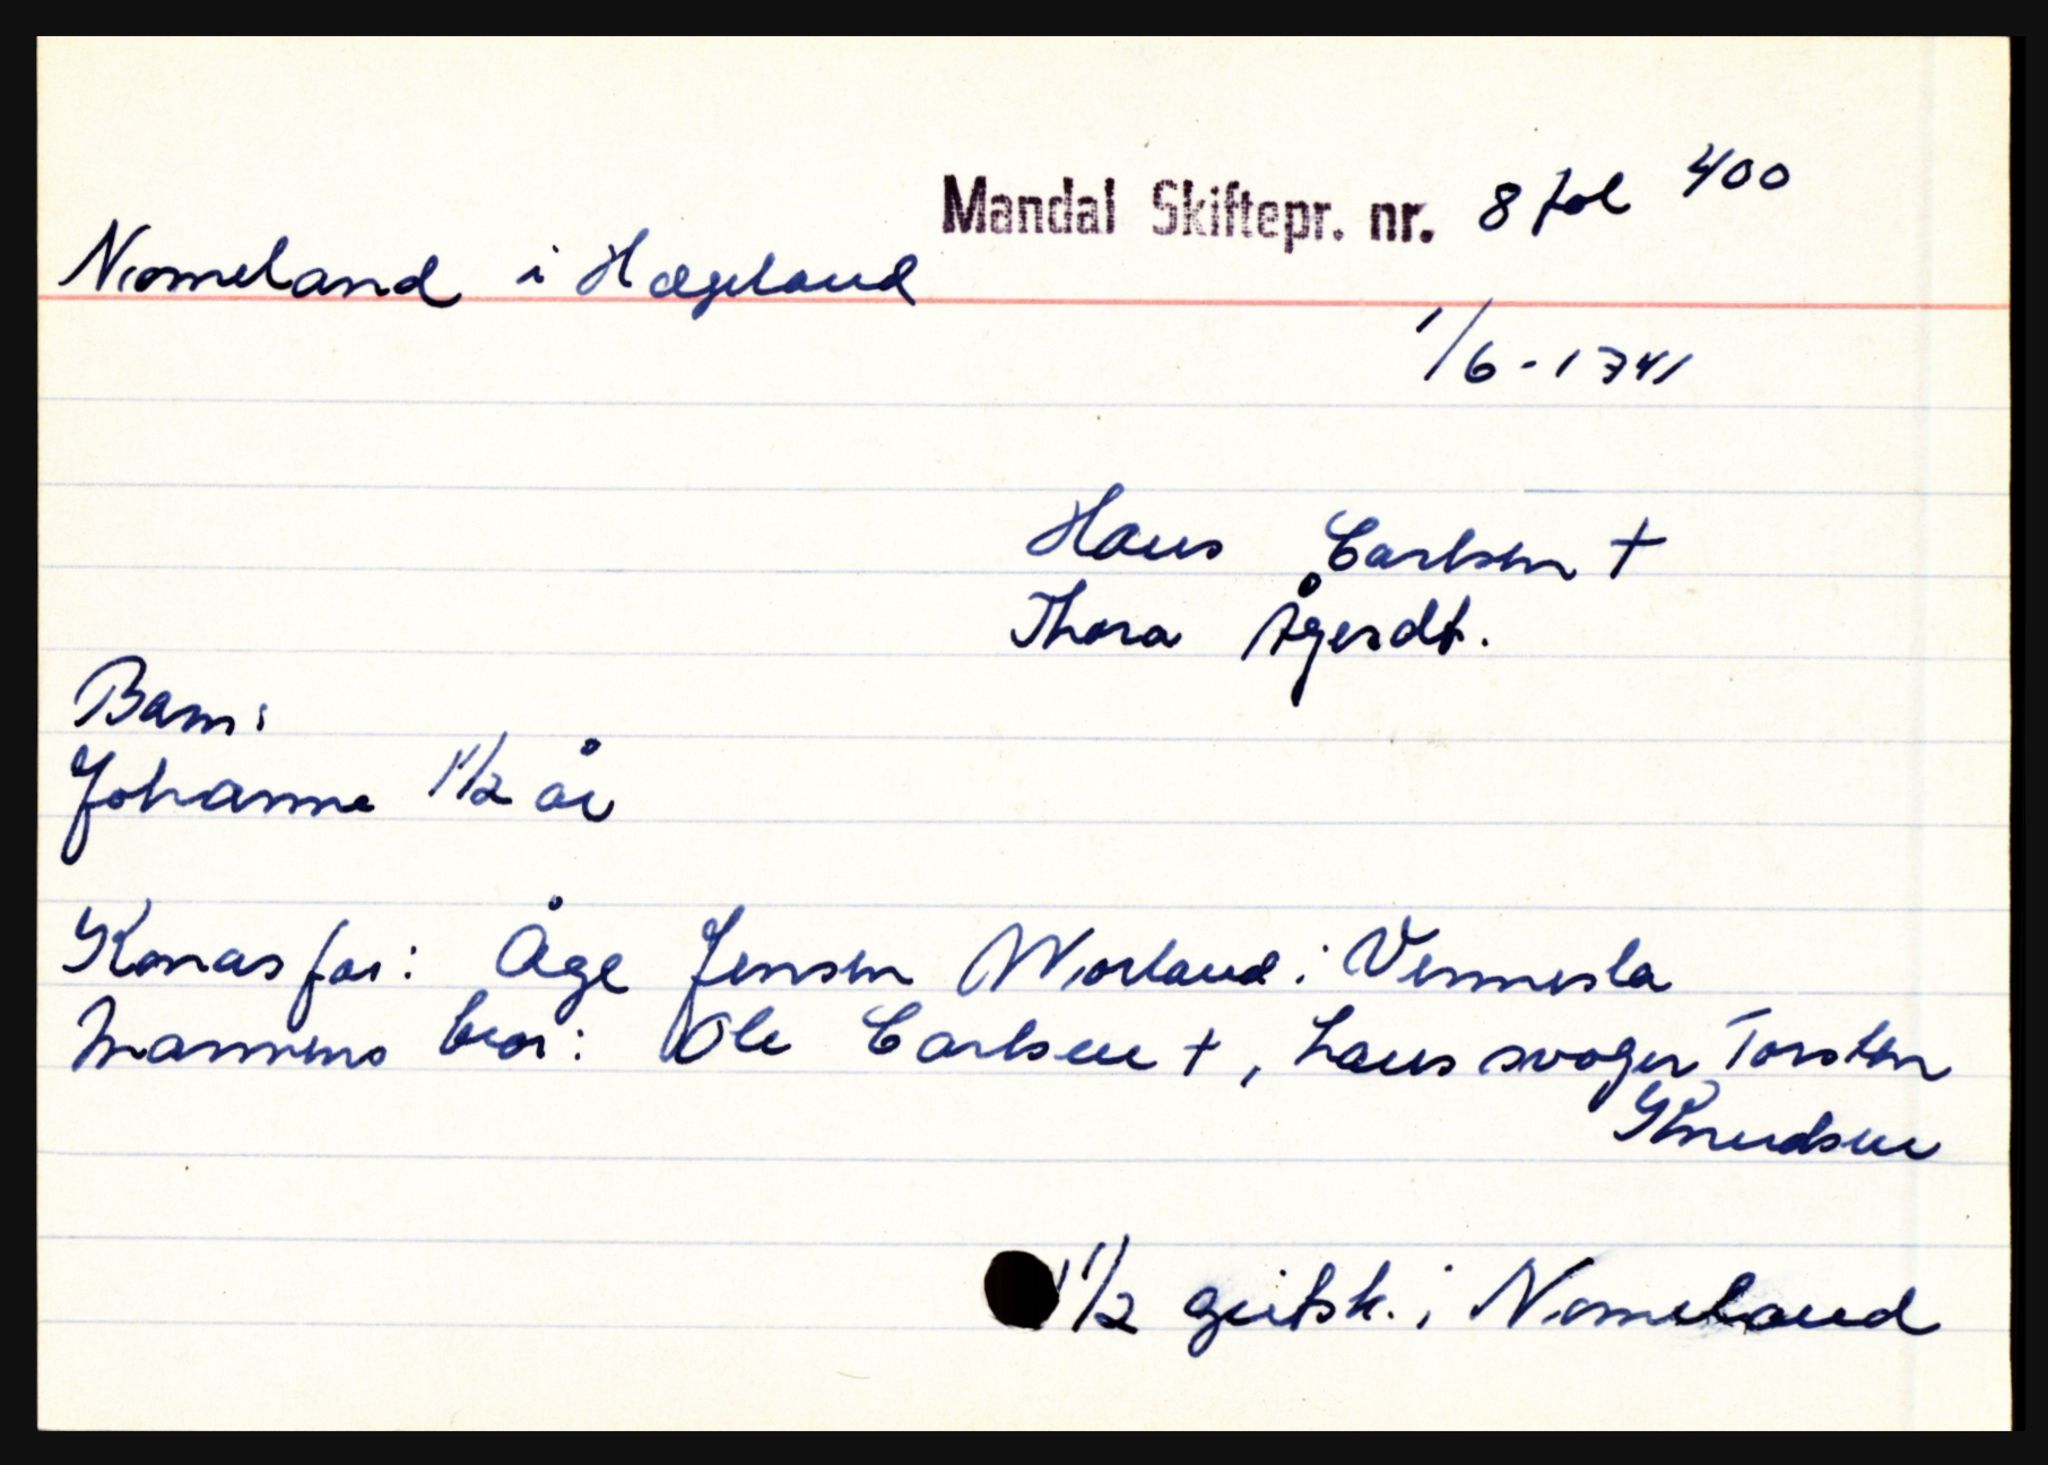 Mandal Skiftepr. nr. 8 fol 400
Nomeland i Hægeland
1/6-1741
Hans Carlsen +
Thora Ågesdt.
Barn:
Johanne 1 1/2 år
Konas far: Åge Jensen Morland i Vennesla
Mannens bror: Ole Carlsen +, hans svoger Torsten
Knudsen
1 1/2 gutsk. i Nomeland